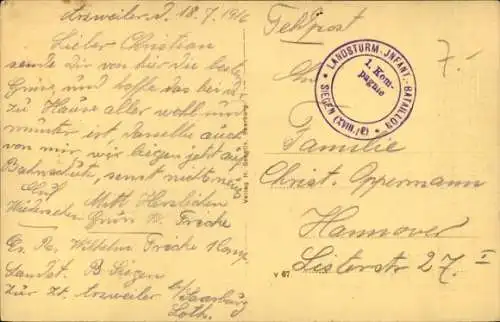 Arzweiler d. 18.7.1916
Lieber Christian
sende dir von hier die besten
Grüse, und hoffe das bei dir
zu Hause aller wohl und
munter ist, dasselbe auch
von mir, wir liegen jetzt auf
Bahnschutz, sonst nichts neues
Auf
Wiedersehn
Mitt Herzlichen
Gruss W. Fricke
Wilhelm Fricke 1 Komp
Landst. B. Siegen
zur Zt. Arzweiler b/Saarburg
Loth.
Feldpost
7.
LANDSTURM-INFANT.-BATAILLON
SIEGEN (XVIII./8)
1. Kom-
pagnie
An
Familie
Christ. Oppermann
Hannover
Listerstr 27 I
V 67